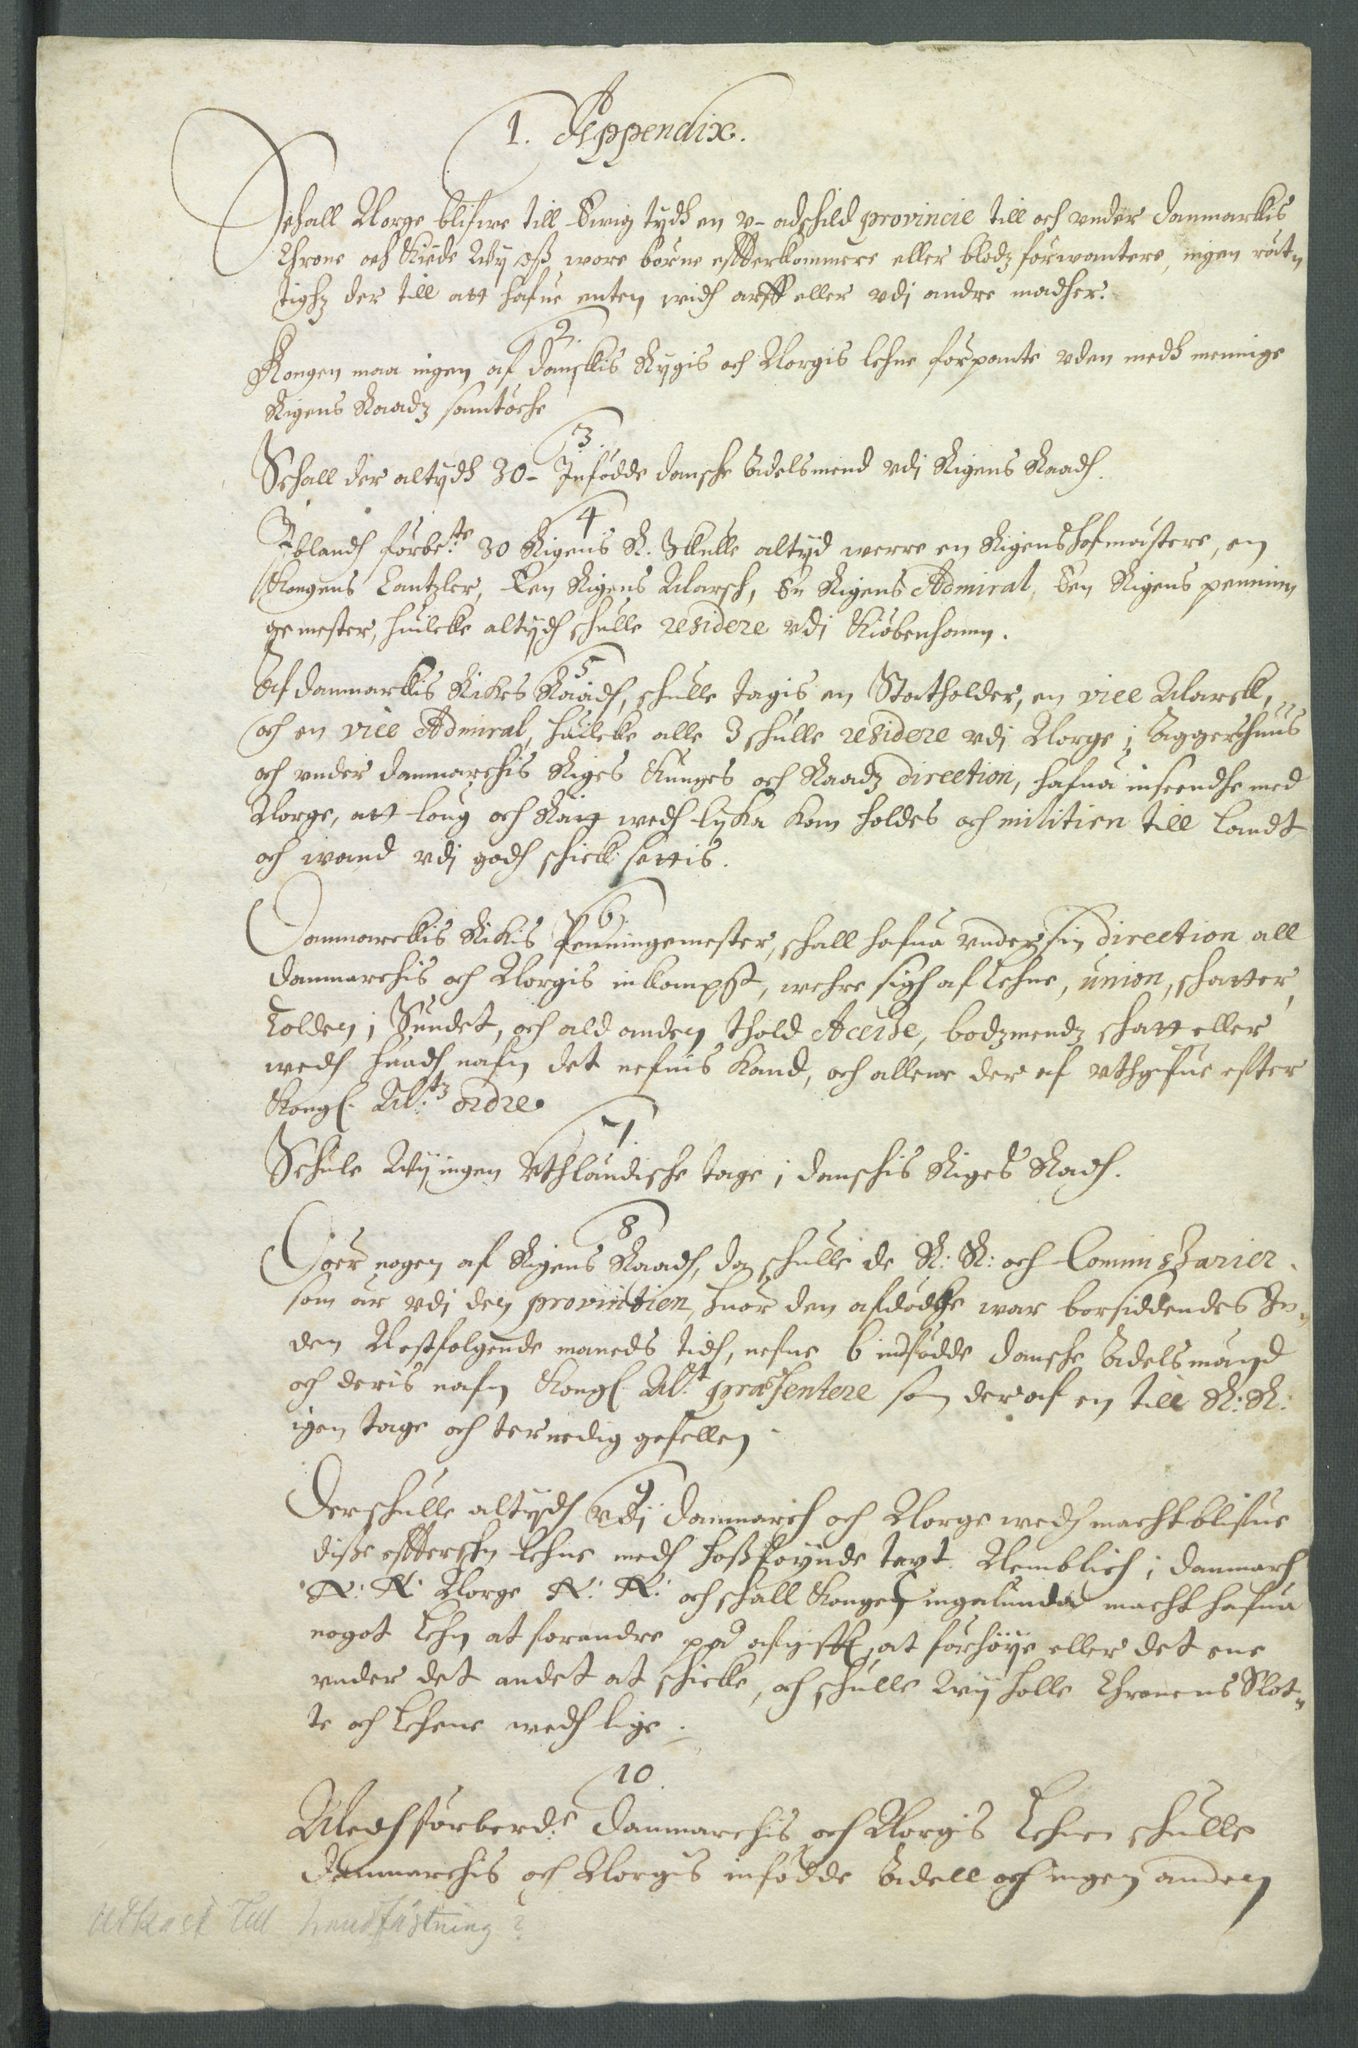 1. Appendix.
Schall Norge blifwe till Ewig tydh en v-adschild provincie till och vnder danmarkis
Chrone och Kiede Wy oß wore börne effterkommere eller blodz förwantere, ingen rätt
tighz der till att hafue enten widh arff eller vdj andre madher.
2.
Kongen maa ingen af danskis Rygis och Norgis lehne förpante vden medh mennige
Rigens Raadz samtöche
3.
Schall der altydh 30 - Infödde dansche Adelsmend vdj Rigens Raadh.
4
Iblandh förbe:te 30 Rigens R. Skulle altyd werre en Rigens hofmeistere, en
Kongens Cantzler, Een Rigens Marsch, En Rigens Admiral, Een Rigens pennin
gemester, huilcke altydh schulle residere vdj Kiöbenhamn.
5
Af danmarkis Rikes Raadh, schulle tagis en Statholder, en vice Marsk,
och en vice Admiral, huilcke alle 3 schulle residere vdj Norge i Aggershuus
och vnder danmarchis Riges Kunges och Raadz direction, hafua inseendhe med
Norge, att loug och Rätt wedh lyka kom holdes och militien till Landt
och wand vdj godh schick settis.
6.
Danmarckis Rikis Penningemester, schall hafua vnder sin direction all
danmarchis och Norgis inkompst, wehre sigh af Lehne, union, schatter,
Tolden i Sundet, och ald anden thold Accise, bodzmendz schatt eller
wedh huadh nafn det nefnis kand, och allene der af vthgefue efter
Kongl. M:tz ordre
7
Schule Wij ingen Vthländische tage i danschis Riges Radh.
8
Döer nogen af Rigens Raadh, da schulle de R: R: och Commissarier
som är vdj den provintien, huor den afdödhe war borsiddendes In
den Nestfolgende maneds tidh, nefne 6 infödde dansche Adelsmänd
och deris nafn Kongl. M:t præsentere som der af en till R: R:
igen tage och ternedig gefellen
9
Der schulle altydh vdj danmarch och Norge wedh macht blifue
disse effterschn lehne medh hoßföynde taxt. Nemblich i danmarch
N: N: Norge N: N: och schall Kongen ingalunda macht hafua
nogot Lehn at forandre paa afgifft, at förhöye eller det ene
vnder det andet at schicke, och schulle Wij holle Chronens Slot
te och Lehene wedh lige.
10.
Medh förberd:e danmarchis och Norgis Lehne schulle
danmarchis och Norgis infödde Adell och ingen anden
Utkast till handfästning?